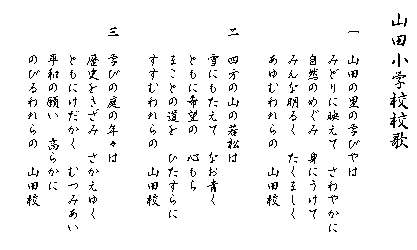 山田小学校校歌
一 山田の里の学びやは
みどりに映えて さわやかに
自然のめぐみ 身にうけて
みんな明るく たくましく
あゆむわれらの 山田校
二 四方の山の若松は
雪にもたえて なお青く
ともに希望の 心もち
まことの道を ひたすらに
すすむわれらの 山田校
三 学びの庭の年々は
歴史をきざみ さかえゆく
ともにけだかく むつみあい
平和の願い 高らかに
のびるわれらの 山田校